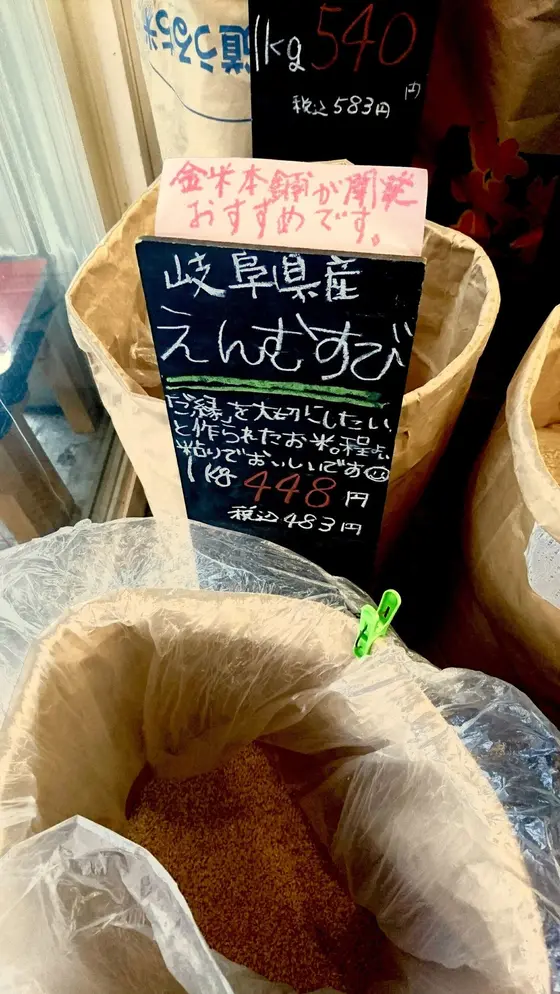 道うるち米
1kg 540円
税込583円
金米本舗が開発
おすすめです。
岐阜県産
えんむすび
「ご縁」を大切にしたい、
と作られたお米。程よい
粘りでおいしいです
1kg 448円
税込483円